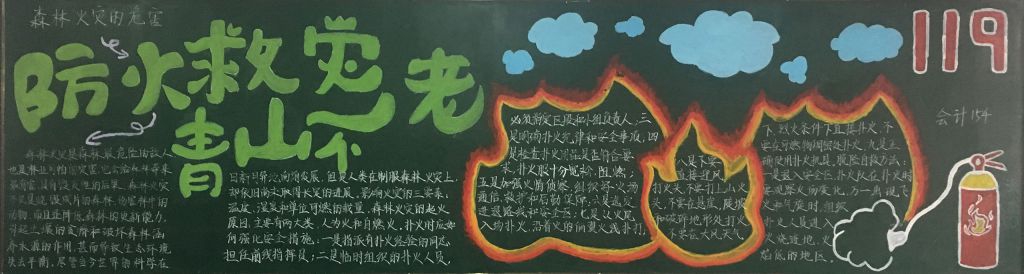 森林火灾的危害
防火救灾
青山不老
119
会计154
森林火灾是森林最危险的敌人
也是林业可怕的灾害。它会给森林带来
最有害，具有毁灭性的后果。森林火灾
不只是烧毁成片的森林，伤害林中的
动物，而且还降低森林的更新能力，
引起土壤的贫瘠和破坏森林涵
养水源的作用，甚而导致生态环境
失去平衡。尽管当今世界的科学在
日新月异地向前发展，但是人类在制服森林火灾上，
却依旧尚未取得长足的进展。影响火灾的三要素，
温度、湿度和单位可燃的载量。森林火灾的起火
原因，主要有两大类，人为火和自燃火。扑火时应如
何强化安全措施：一是指派有扑火经验的同志
担任前线指挥员；二是临时组织的扑火人员，
必须指定区段和小组负责人，三
是明确扑火纪律和安全事项，四
是检查扑火用品是否符合要
求，扑火服十分宽松、阻燃，
五是加强火情侦察，组织好火场
通信、救护和后勤保障，六是选定
进退路线和安全区；七是从火尾
入场扑火，沿着火的两翼火线扑打，
八是不要
直接迎风
打火头，不要打上山火
头，不要在悬崖、陡坡
和破碎地形处打火，
不要在大风天气
下、烈火条件下直接扑火，不
要在可燃物稠密处扑火，九是正
确使用扑火机具，脱险自救方法：
一是退入安全区。扑火队在扑火时
要观察火场变化，万一出现飞
火和气旋时，组织
扑火人员进入
火烧过地、火
焰低的地区。